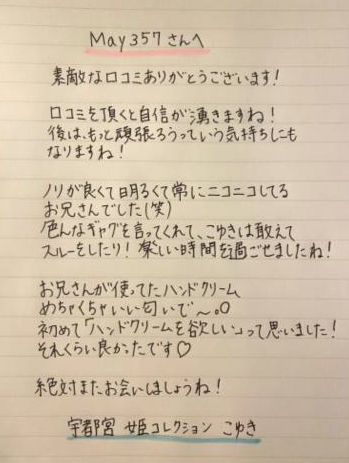 May357さんへ
素敵な口コミありがとうございます!
口コミを頂くと自信が湧きますね!
後は、もっと頑張ろうっていう気持ちにも
なりますね!
ノリが良くて明るくて常にニコニコしてる
お兄さんでした(笑)
色んなギャグを言ってくれて、こゆきは敢えて
スルーをしたり!楽しい時間を過ごせましたね!
お兄さんが使ってたハンドクリーム
めちゃくちゃいい匂いで〜。○
初めて「ハンドクリームを欲しい」って思いました!
それくらい良かったです♡
絶対またお会いしましょうね!
宇都宮 姫コレクション こゆき